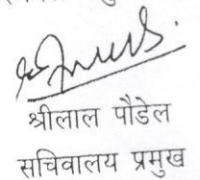 श्रीलाल पौडेल
सचिवालय प्रमुख